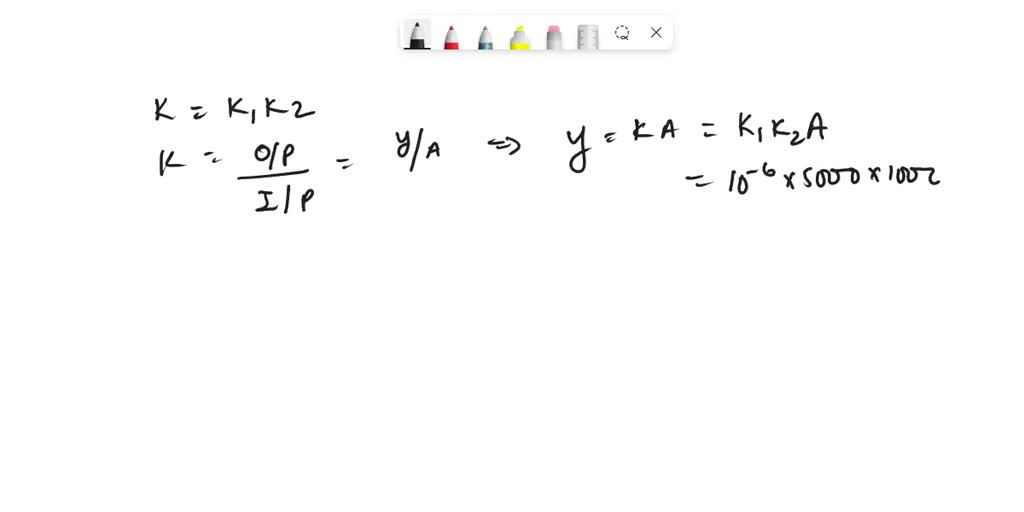 K = K₁K2
K = O/P / I/P = y/A ⇒ y = KA = K₁K₂A
= 10⁻⁶ × 5000 × 1000